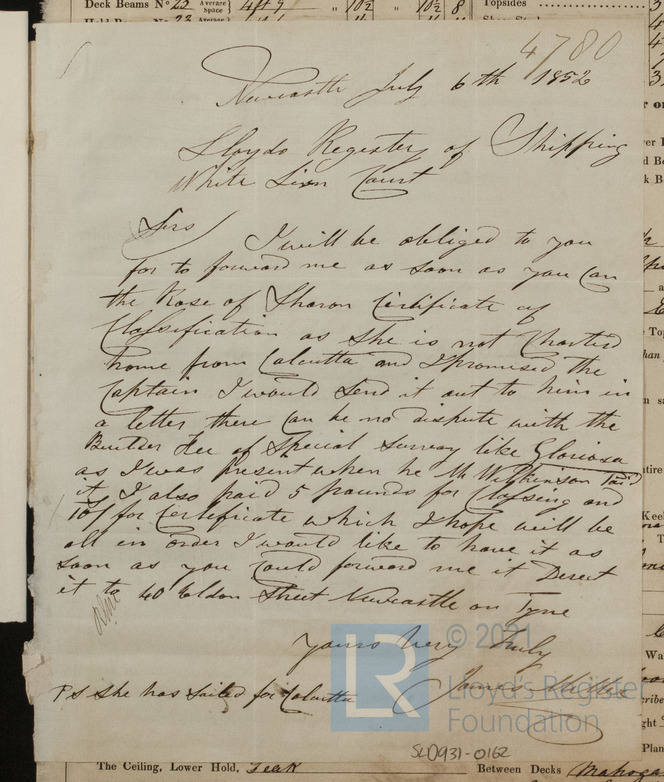 Deck Beams No 22 Average Space
Topsides
4780
Newcastle July 6th 1852
Lloyds Registery of Shipping
White Lion Court
Sirs I will be obliged to you
for to forward me as soon as you can
the Rose of Sharon Certificate of
Classification as she is not Charterd
home from Calcutta and I promised the
Captain I would send it out to him in
a letter there can be no dispute with the
Builder Fee of Special Survey like Gloriosa
as I was present when he Mr Wilkinson Paid
it I also paid 5 pounds for Classing and
10/ for Certificate which I hope will be
all in order I would like to have it as
soon as you could forward me it Derect
it to 40 Eldon Street Newcastle on Tyne
Yours Very Truly
James
PS She has sailed for Calcutta
© 2021
LR
Lloyd's Register
Foundation
SLD931-0162
The Ceiling, Lower Hold, Teak
Between Decks